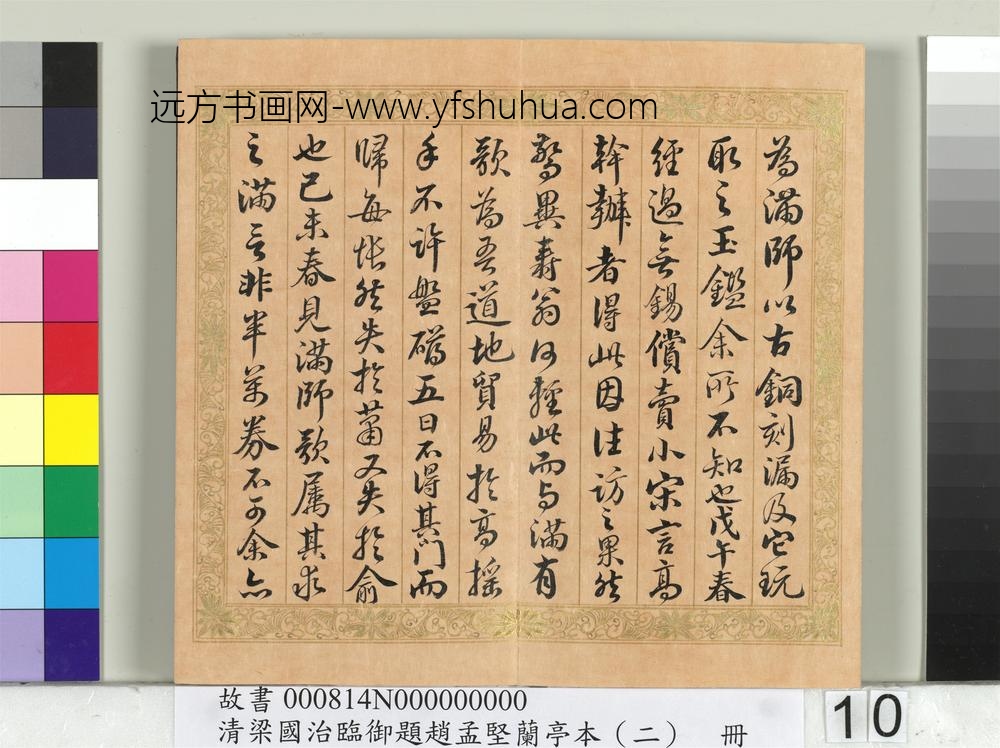 远方书画网-www.yfshuhua.com
為滿師以古銅刻漏及它玩
取之玉鑑余所不知也戊午春
經過無錫償賣小宋言高
幹辦者得此因往訪之果然
驚異壽翁何輕此而与滿有
款為吾道地貿易於高搖
手不許盤礴五日不得其門而
歸每悵然失於蕭又失於俞
也己未春見滿師款屬其求
之滿言非半萬券不可余亦
故書 000814N000000000
清梁國治臨御題趙孟堅蘭亭本（二） 冊
10